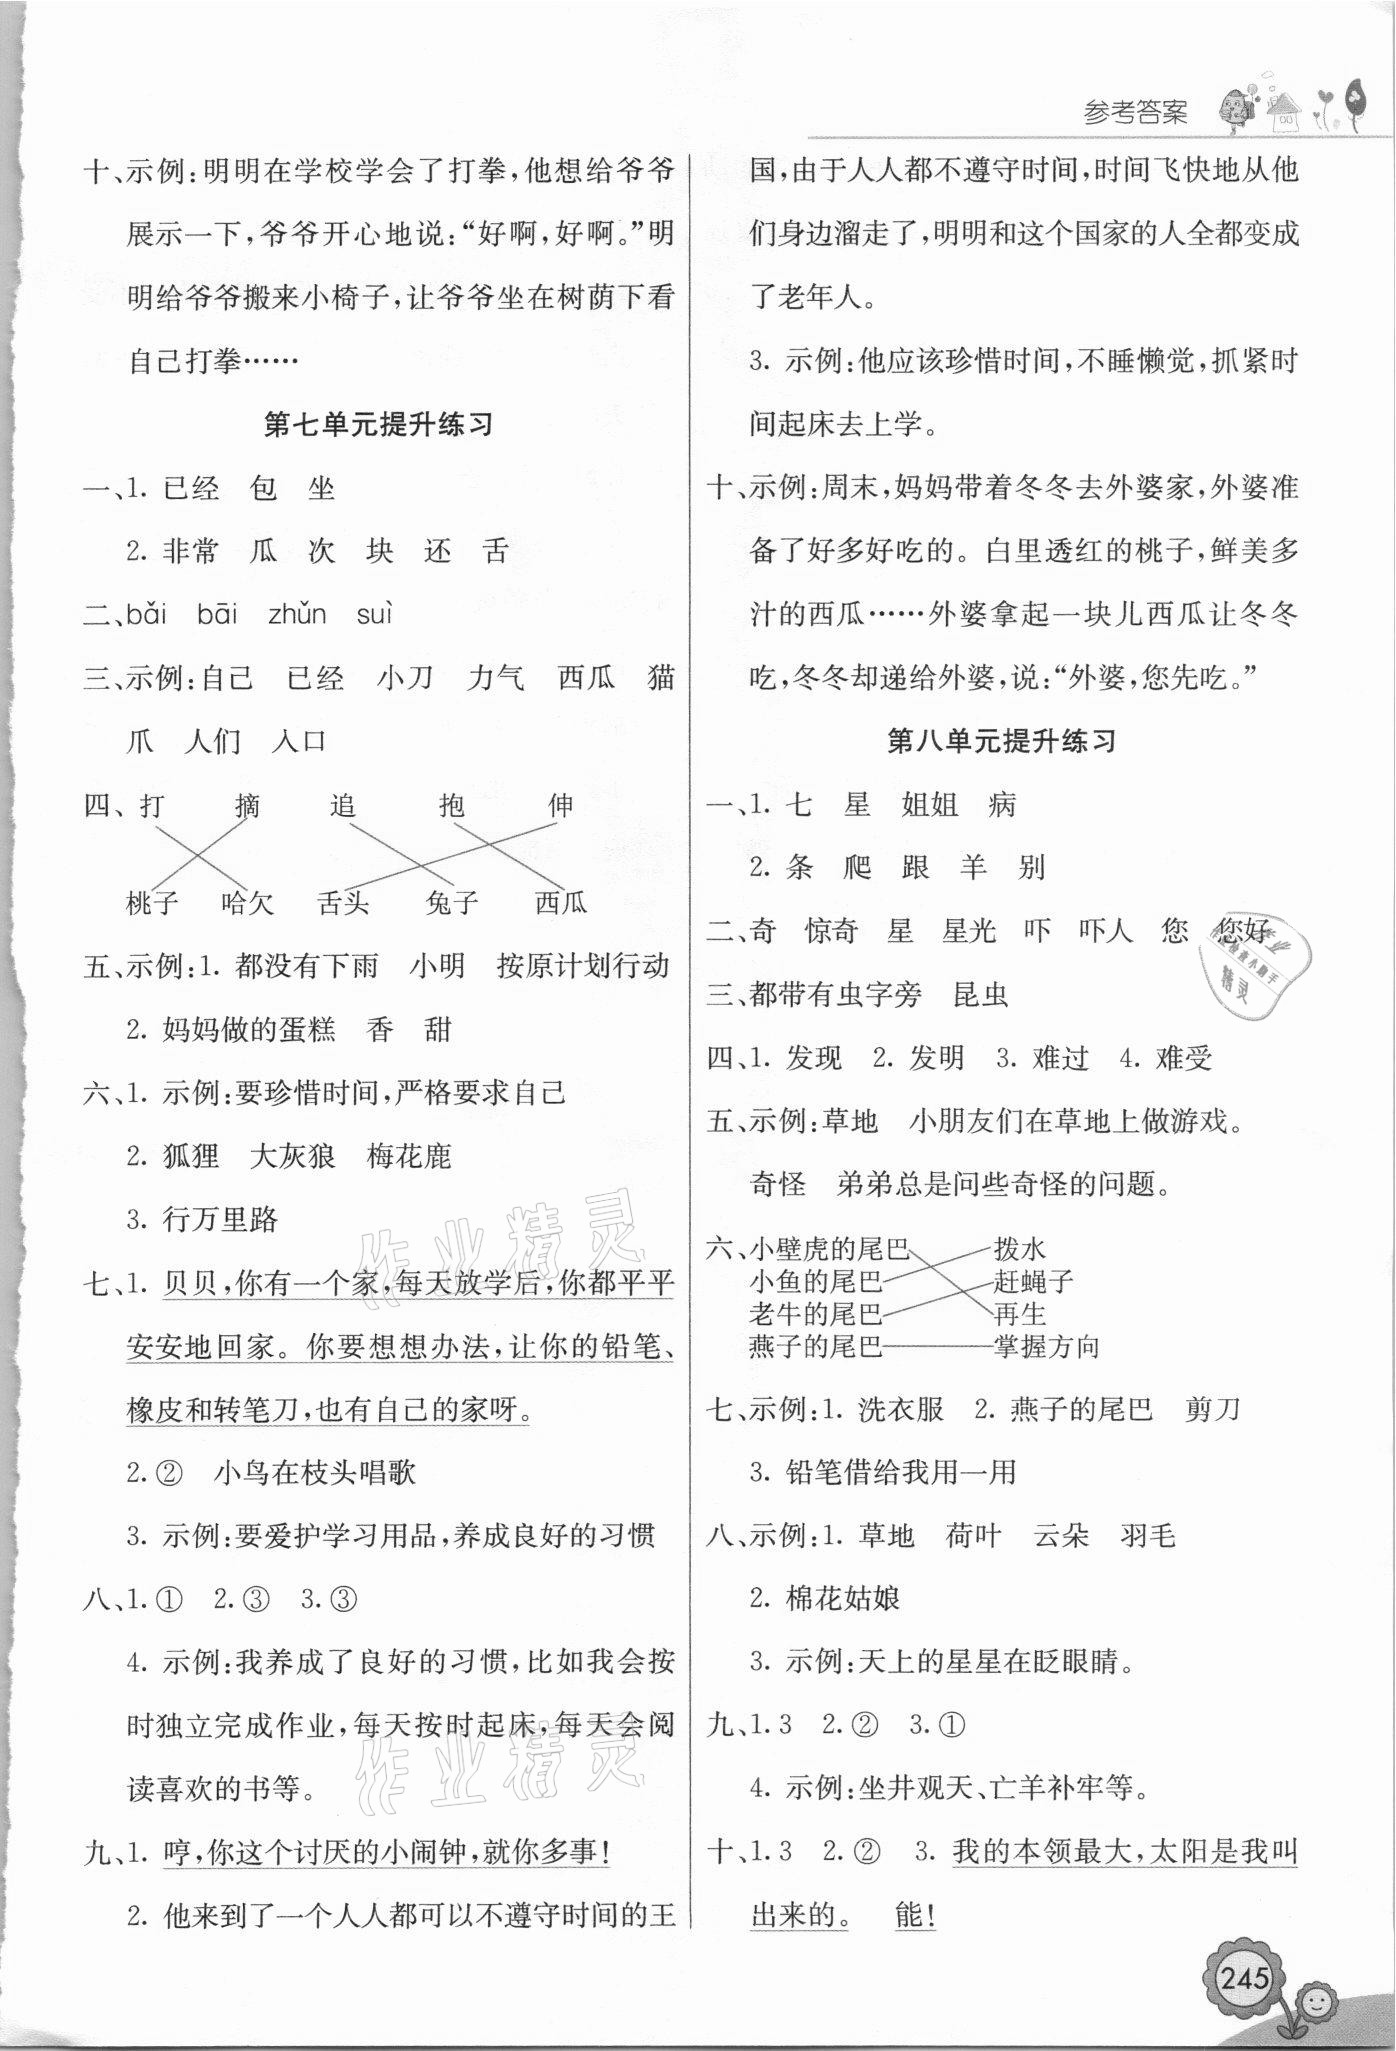 参考答案
十、示例:明明在学校学会了打拳,他想给爷爷
展示一下,爷爷开心地说:“好啊,好啊。”明
明给爷爷搬来小椅子,让爷爷坐在树荫下看
自己打拳……
第七单元提升练习
一、1. 已经 包 坐
2. 非常 瓜 次 块 还 舌
二、bǎi bāi zhǔn suì
三、示例:自己 已经 小刀 力气 西瓜 猫
爪 人们 入口
四、打 摘 追 抱 伸
桃子 哈欠 舌头 兔子 西瓜
五、示例:1. 都没有下雨 小明 按原计划行动
2. 妈妈做的蛋糕 香 甜
六、1. 示例:要珍惜时间,严格要求自己
2. 狐狸 大灰狼 梅花鹿
3. 行万里路
七、1. 贝贝,你有一个家,每天放学后,你都平平
安安地回家。你要想想办法,让你的铅笔、
橡皮和转笔刀,也有自己的家呀。
2. ② 小鸟在枝头唱歌
3. 示例:要爱护学习用品,养成良好的习惯
八、1. ① 2. ③ 3. ③
4. 示例:我养成了良好的习惯,比如我会按
时独立完成作业,每天按时起床,每天会阅
读喜欢的书等。
九、1. 哼,你这个讨厌的小闹钟,就你多事!
2. 他来到了一个人人都可以不遵守时间的王
国,由于人人都不遵守时间,时间飞快地从他
们身边溜走了,明明和这个国家的人全都变成
了老年人。
3. 示例:他应该珍惜时间,不睡懒觉,抓紧时
间起床去上学。
十、示例:周末,妈妈带着冬冬去外婆家,外婆准
备了好多好吃的。白里透红的桃子,鲜美多
汁的西瓜……外婆拿起一块儿西瓜让冬冬
吃,冬冬却递给外婆,说:“外婆,您先吃。”
第八单元提升练习
一、1. 七 星 姐姐 病
2. 条 爬 跟 羊 别
二、奇 惊奇 星 星光 吓 吓人 您 您好
三、都带有虫字旁 昆虫
四、1. 发现 2. 发明 3. 难过 4. 难受
五、示例:草地 小朋友们在草地上做游戏。
奇怪 弟弟总是问些奇怪的问题。
六、小壁虎的尾巴 拨水
小鱼的尾巴 赶蝇子
老牛的尾巴 再生
燕子的尾巴 掌握方向
七、示例:1. 洗衣服 2. 燕子的尾巴 剪刀
3. 铅笔借给我用一用
八、示例:1. 草地 荷叶 云朵 羽毛
2. 棉花姑娘
3. 示例:天上的星星在眨眼睛。
九、1. 3 2. ② 3. ①
4. 示例:坐井观天、亡羊补牢等。
十、1. 3 2. ② 3. 我的本领最大,太阳是我叫
出来的。 能!
245
作业精灵
作业精灵